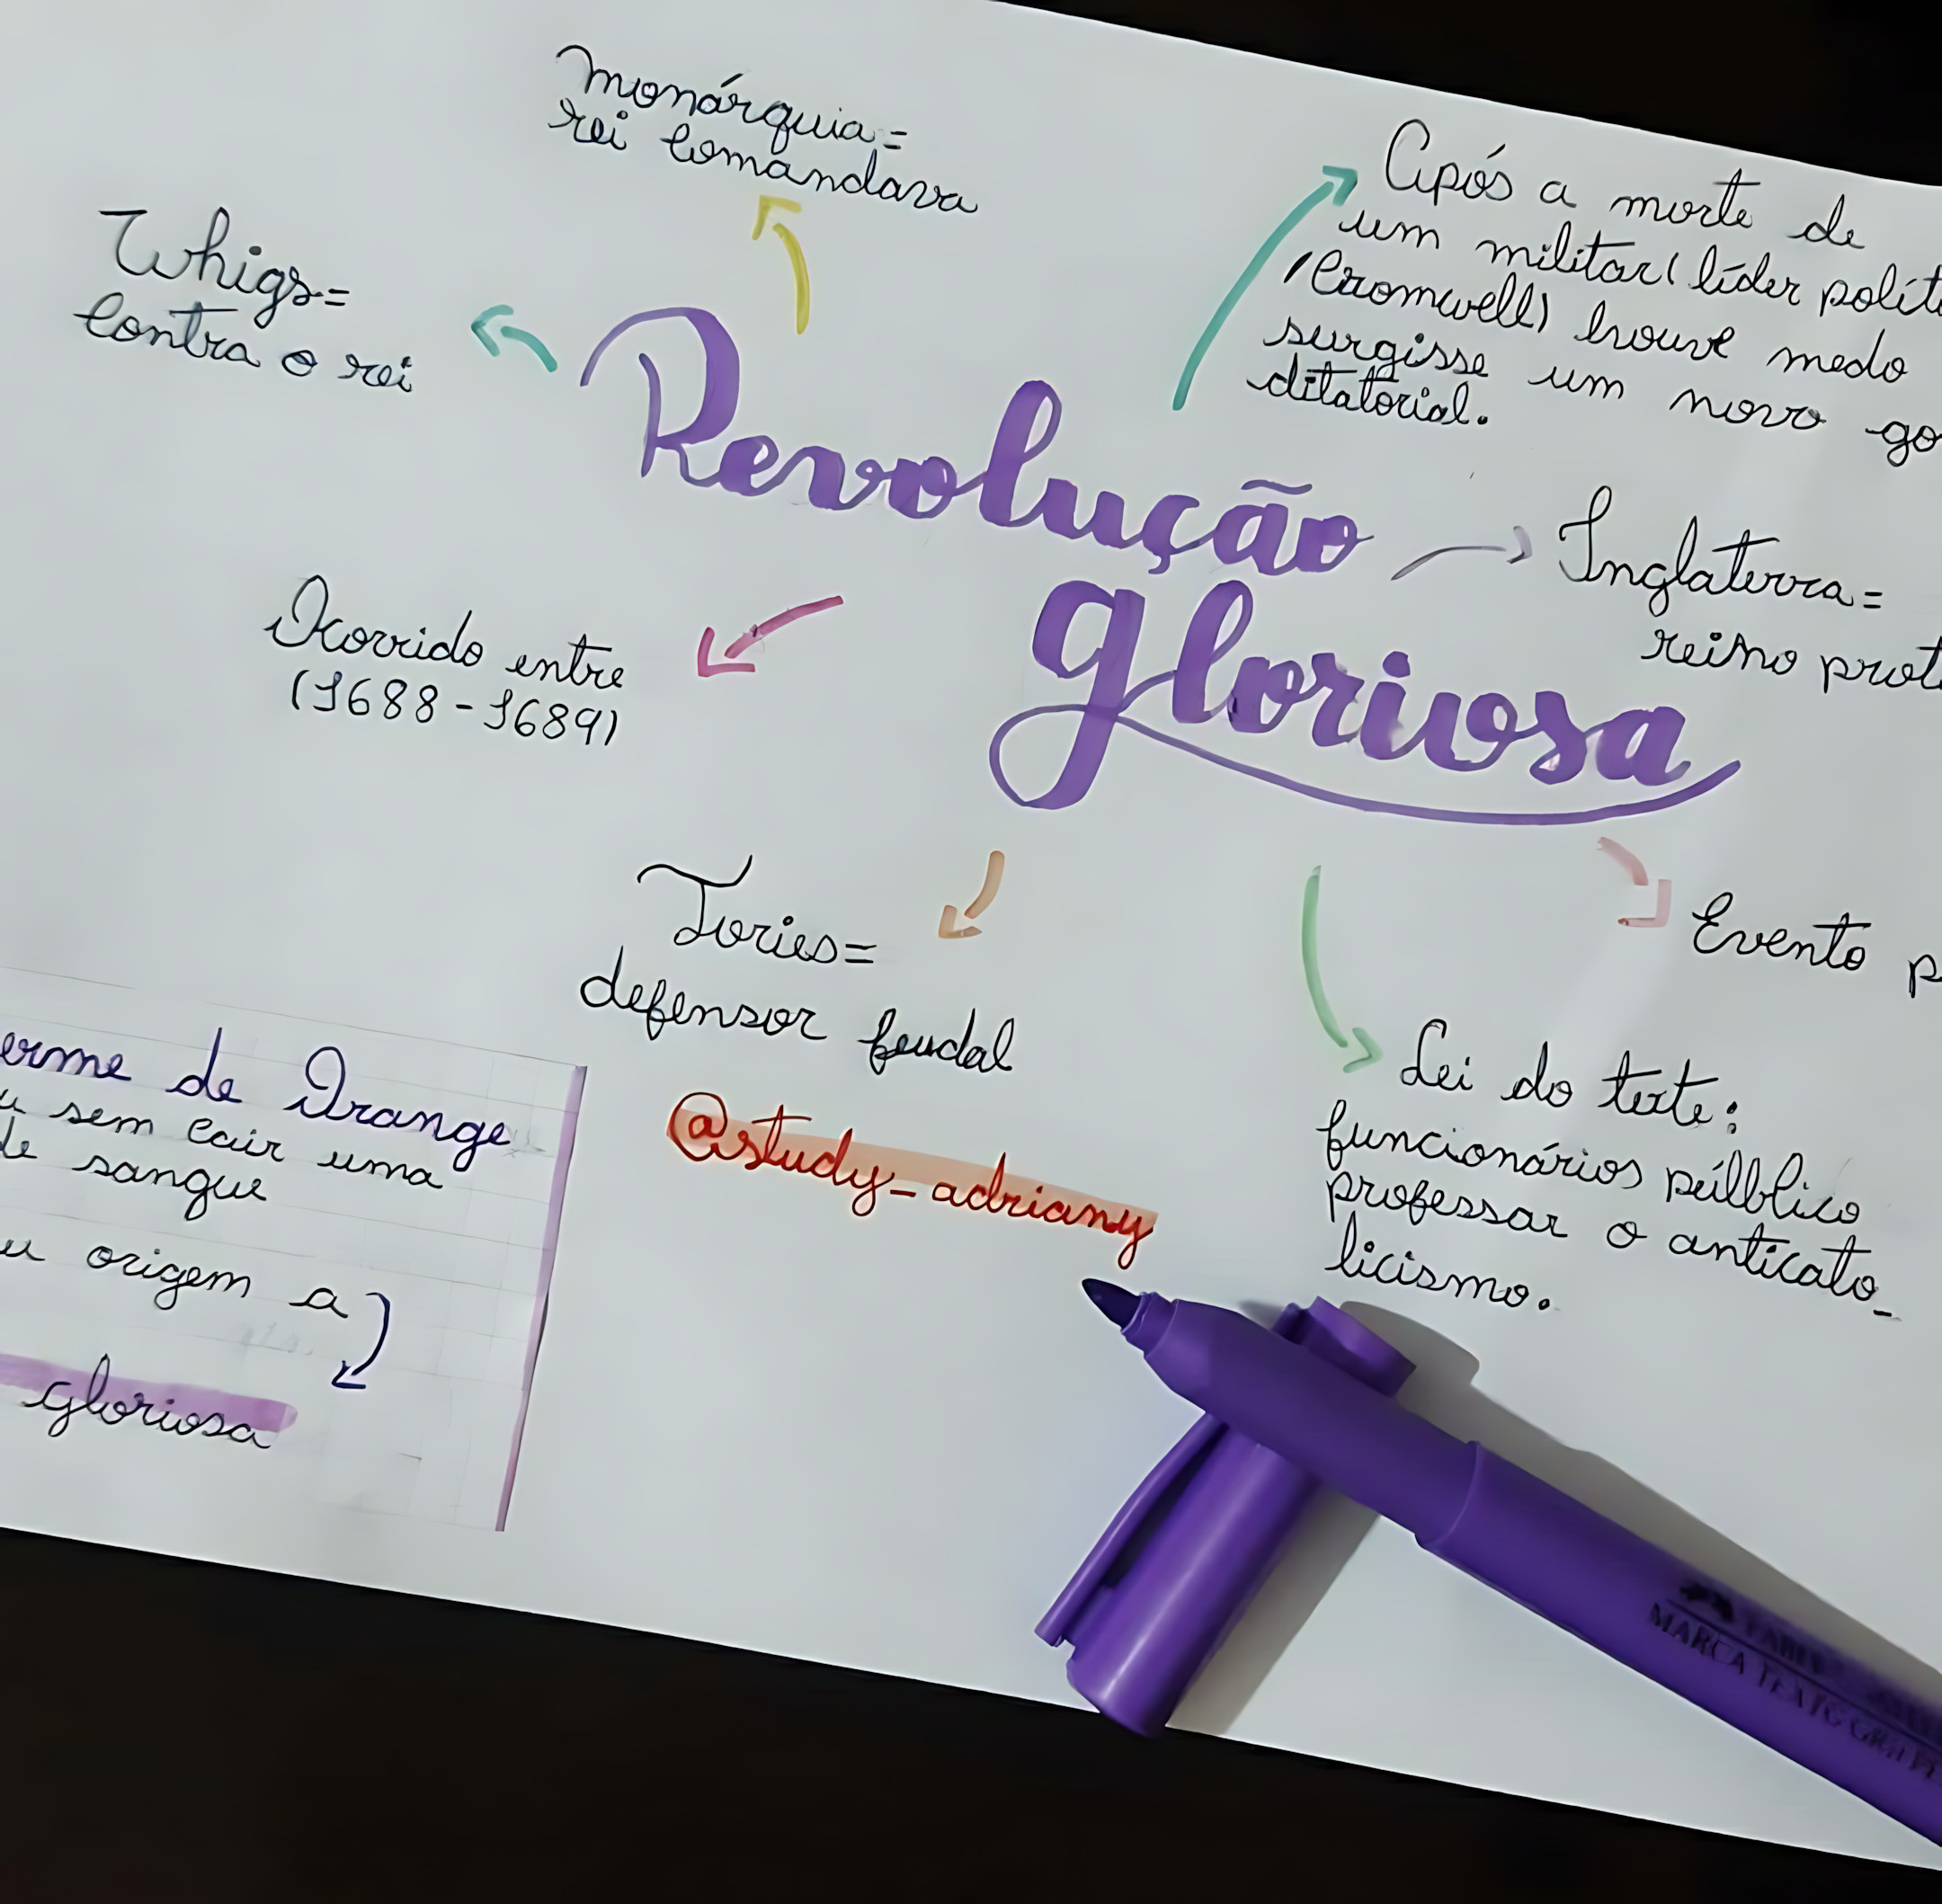 monárquia=
rei comandava
Após a morte de
um militar(líder polít
(Cromwell) houve medo
surgisse um novo go
ditatorial.
Whigs=
contra o rei
Revolução
gloriosa
Inglaterra=
reino prot
Ocorrido entre
(1688-1689)
Tories=
defensor feudal
Evento p
Lei do teste:
funcionários púlblico
professar o anticato-
licismo.
@study_adriany
erme de Orange
u sem cair uma
de sangue
u origem a
gloriosa
MARCA TEXTO